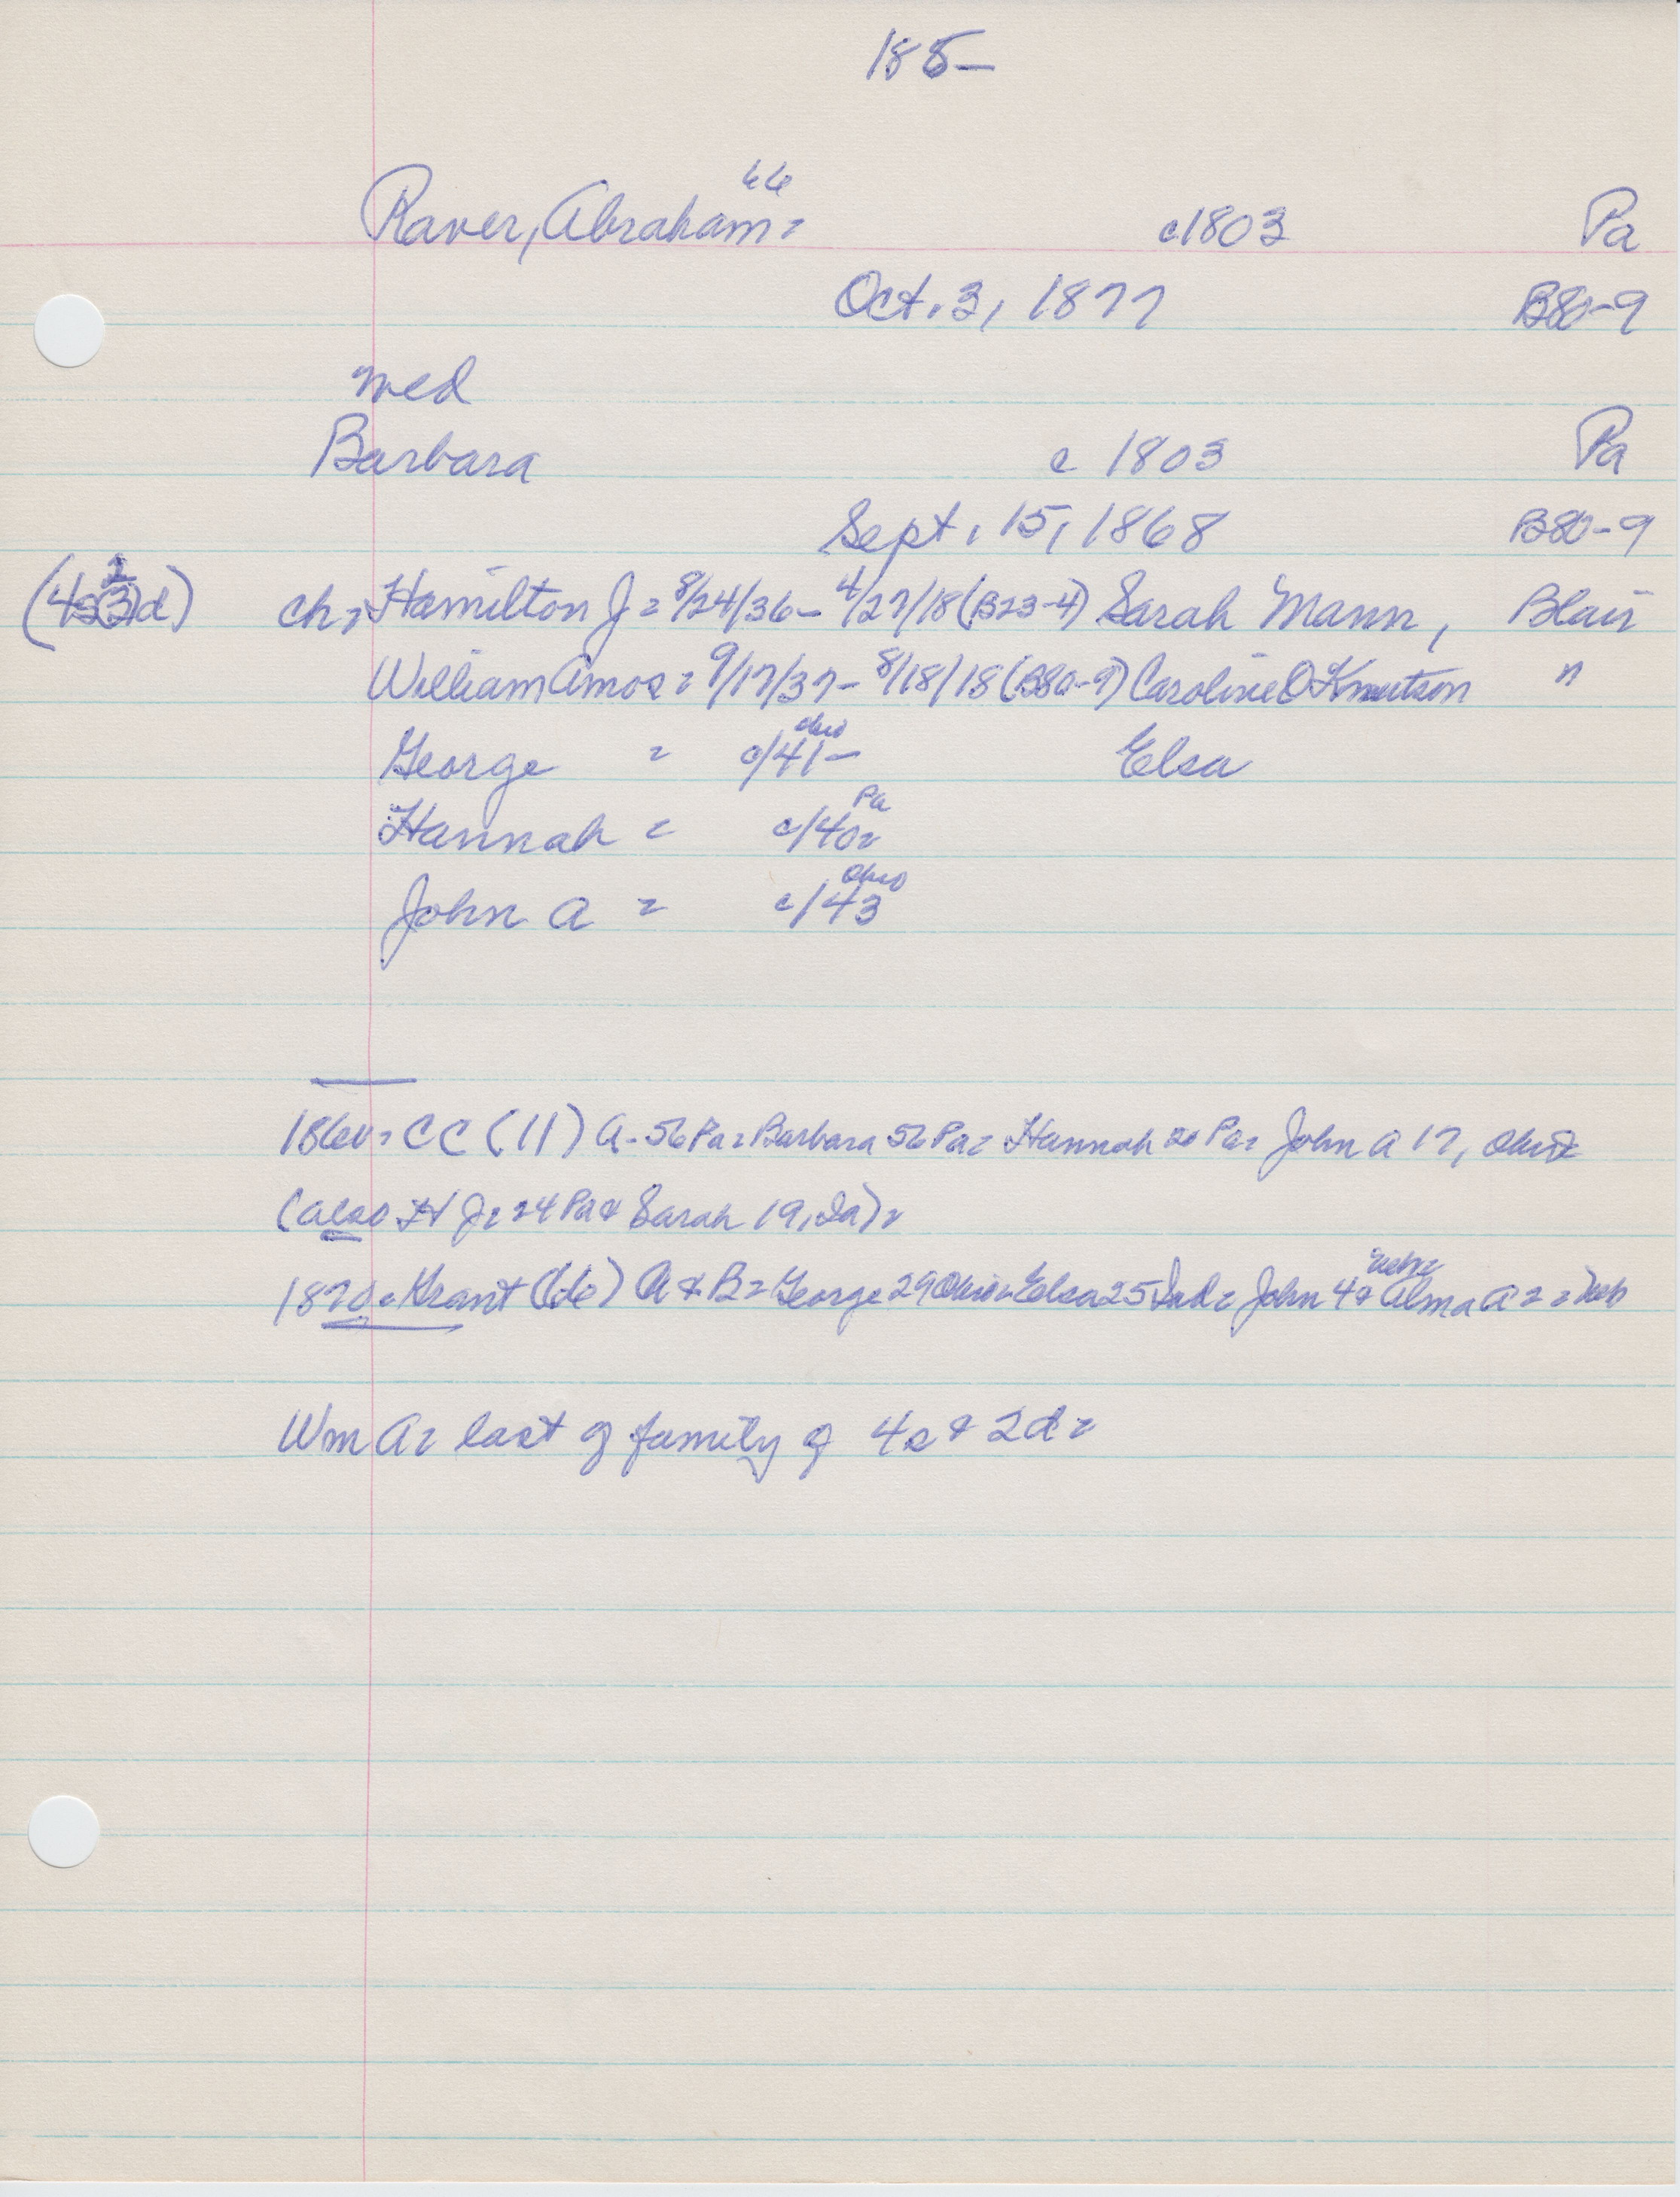 185-
66
Raver, Abraham = c1803 Pa
Oct. 3, 1877 B80-9
med
Barbara c 1803 Pa
Sept. 15, 1868 B80-9
2
(4s3d) ch = Hamilton J = 8/24/36 - 4/27/18 (B23-4) Sarah Mann, Blair
William Amos = 9/17/37 - 8/18/18 (B80-9) Caroline O Knutson "
Ohio
George = c/41- Elsa
Pa
Hannah = c/40=
Ohio
John A = c/43
1860 = CC (11) A - 56 Pa = Barbara 56 Pa = Hannah 20 Pa = John A 17, Ohio
(also H J = 24 Pa & Sarah 19, Ia) =
1870 = Grant (de) A & B = George 29 Ohio = Elsa 25 Ind = John 4 & Alma A 2 = Neb
Wm A = last of family of 4s & 2d =